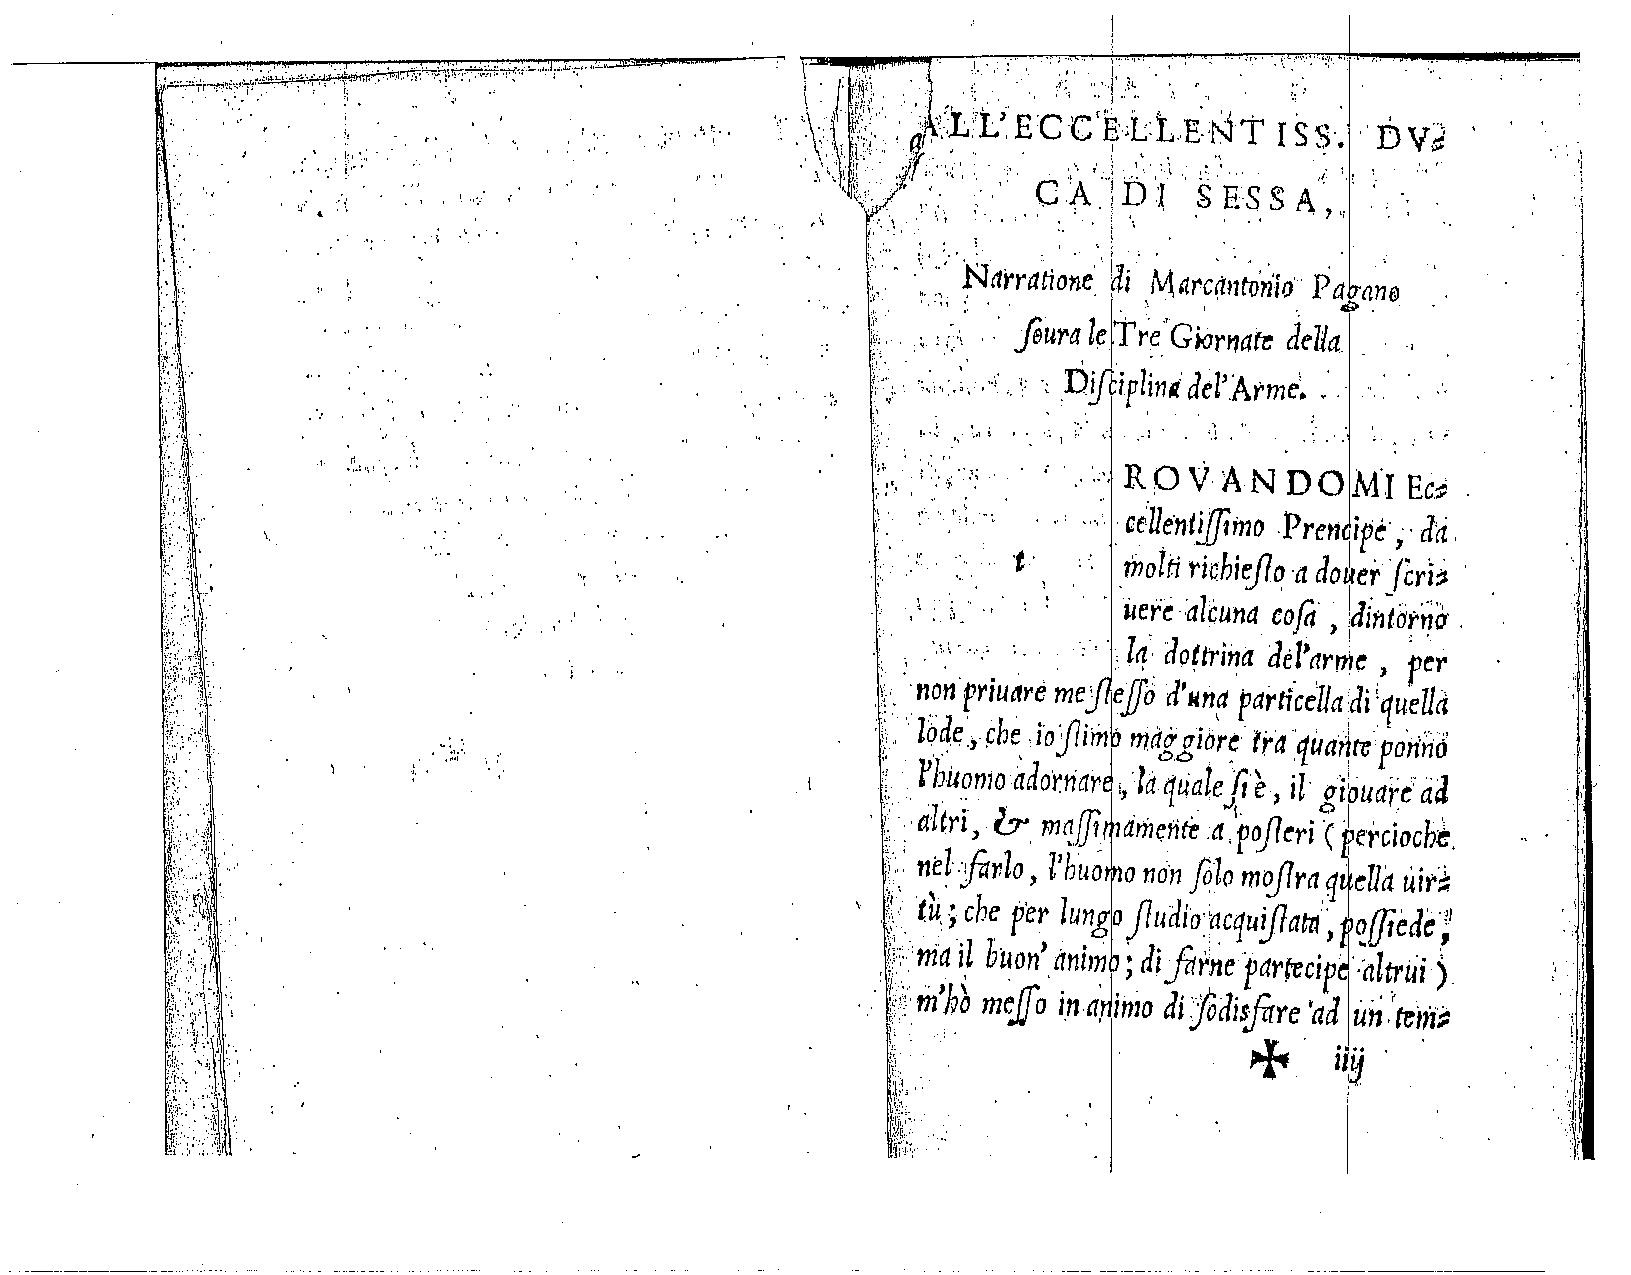 ALL'ECCELLENTISS. DV⸗
CA DI SESSA,
Narratione di Marcantonio Pagano
ſoura le Tre Giornate della
Diſciplina del'Arme.
t
ROVANDOMI Ec⸗
cellentiſſimo Prencipe, da
molti richieſto a douer ſcri⸗
uere alcuna coſa, dintorno
la dottrina del'arme, per
non priuare me ſteſſo d'una particella di quella
lode, che io ſtimo maggiore tra quante ponno
l'huomo adornare, la quale ſi è, il giouare ad
altri, & maſſimamente a poſteri (percioche
nel farlo, l'huomo non ſolo moſtra quella uir⸗
tù; che per lungo ſtudio acquiſtata, poſſiede;
ma il buon' animo; di farne partecipe altrui)
m'hò meſſo in animo di ſodisfare ad un tem⸗
✠ iiij